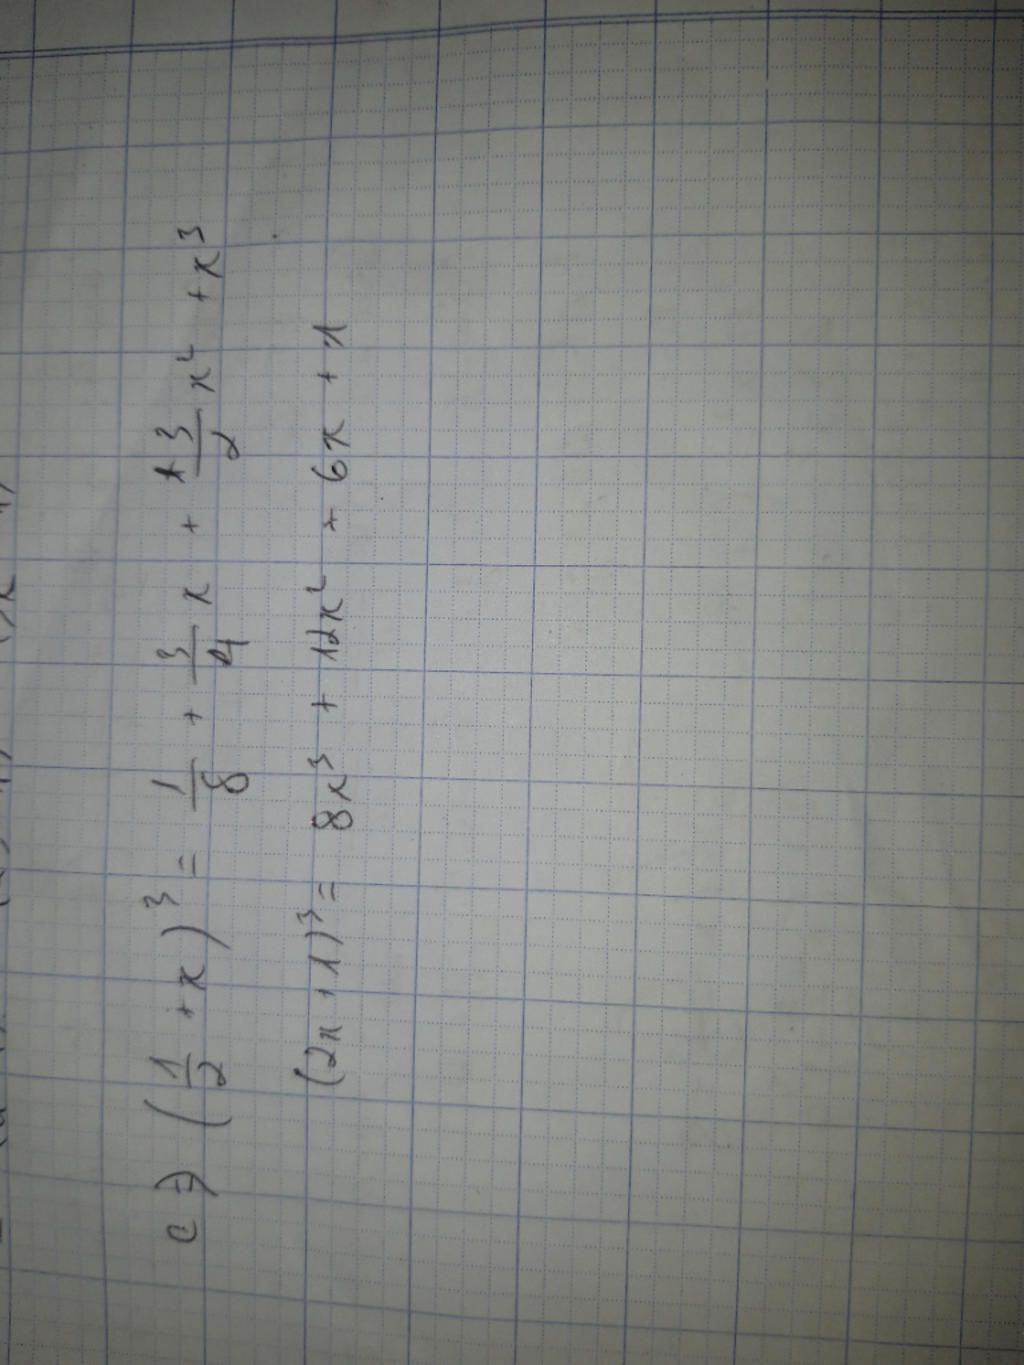 c) (1/2 + x)³ = 1/8 + 3/4 x + 3/2 x² + x³
(2x + 1)³ = 8x³ + 12x² + 6x + 1